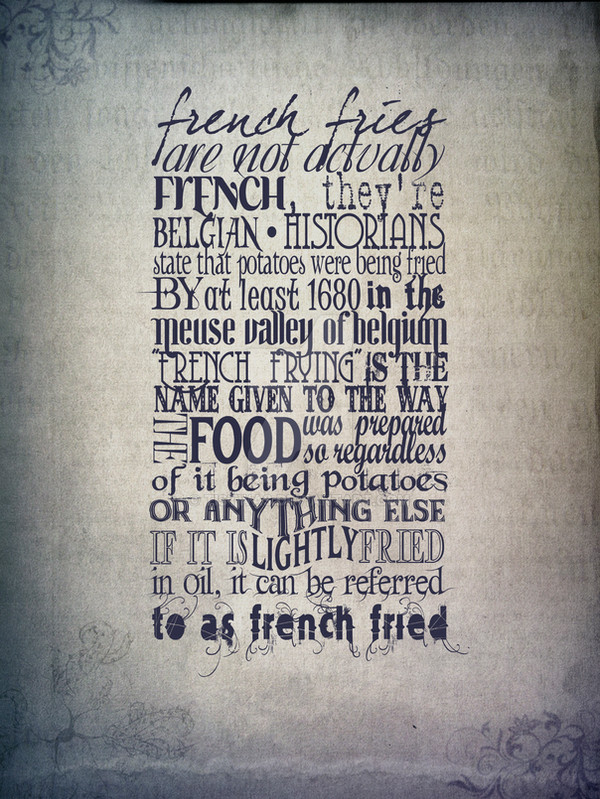 french fries
are not actually
FRENCH, they're
BELGIAN • HISTORIANS
state that potatoes were being fried
BY at least 1680 in the
meuse valley of belgium
"FRENCH FRYING" IS THE
NAME GIVEN TO THE WAY
THE FOOD was prepared
so regardless
of it being potatoes
OR ANYTHING ELSE
IF IT IS LIGHTLY FRIED
in oil, it can be referred
to as french fried